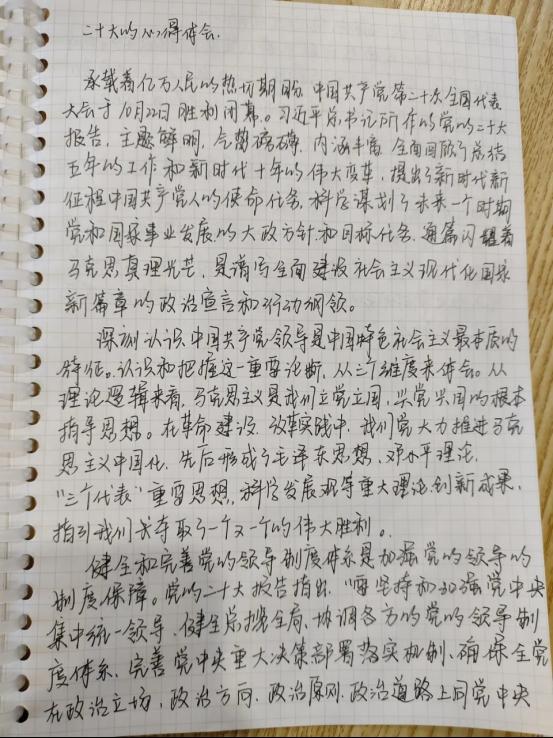 二十大的心得体会.
承载着亿万人民的热切期盼,中国共产党第二十次全国代表
大会于10月22日胜利闭幕。习近平总书记所作的党的二十大
报告,主题鲜明,气势磅礴,内涵丰富,全面回顾了总结
五年的工作和新时代十年的伟大变革,提出了新时代新
征程中国共产党人的使命任务,科学谋划了未来一个时期
党和国家事业发展的大政方针和目标任务,通篇闪耀着
马克思真理光芒,是谱写全面建设社会主义现代化国家
新篇章的政治宣言和行动纲领。
深刻认识中国共产党领导是中国特色社会主义最本质的
特征。认识和把握这一重要论断,从三个维度来体会。从
理论逻辑来看,马克思主义是我们立党立国,兴党兴国的根本
指导思想。在革命建设、改革实践中,我们党大力推进马克
思主义中国化,先后形成了毛泽东思想、邓小平理论,
“三个代表”重要思想,科学发展观等重大理论创新成果,
指引我们夺取了一个又一个的伟大胜利。
健全和完善党的领导制度体系是加强党的领导的
制度保障。党的二十大报告指出,“要坚持和加强党中央
集中统一领导、健全总揽全局、协调各方的党的领导制
度体系、完善党中央重大决策部署落实机制、确保全党
在政治立场、政治方向、政治原则、政治道路上同党中央